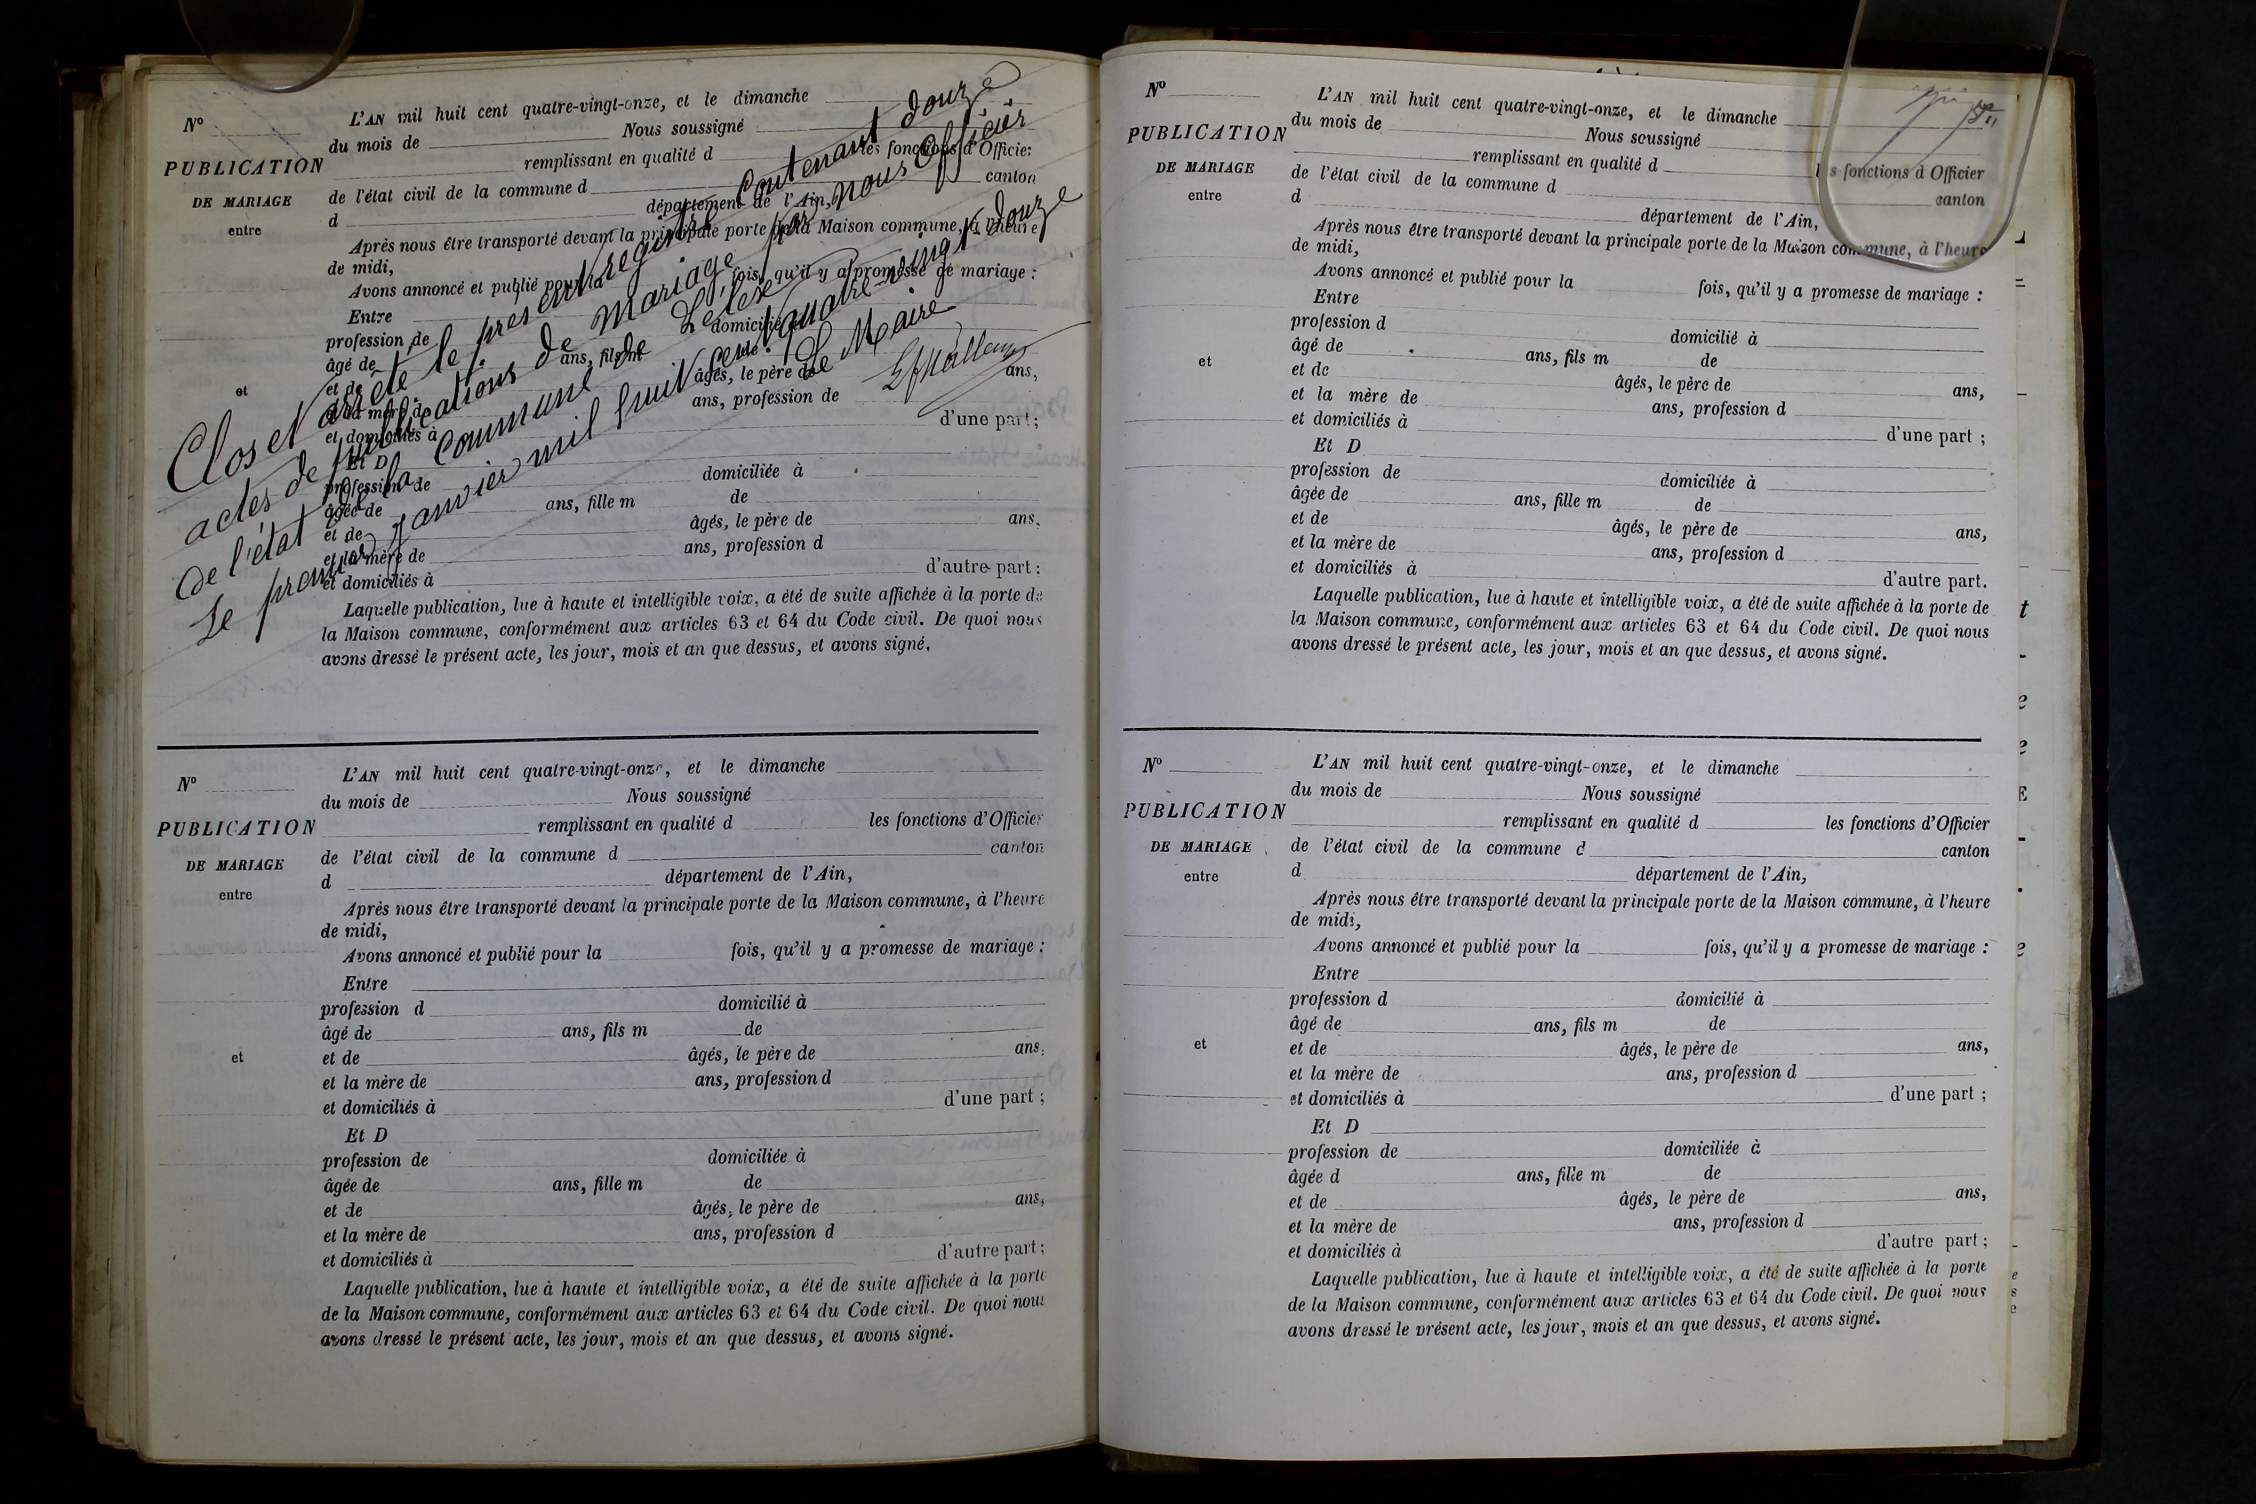 Nº
PUBLICATION
DE MARIAGE
entre
et
L'AN mil huit cent quatre-vingt-onze, et le dimanche
du mois de Nous soussigné
remplissant en qualité d les fonctions d'Officier
de l'état civil de la commune d canton
d département de l'Ain,
Après nous être transporté devant la principale porte de la Maison commune, à l'heure
de midi,
Avons annoncé et publié pour la fois, qu'il y a promesse de mariage :
Entre
profession de domicilié
âgé de ans, fils m de
et de âgés, le père de ans,
et la mère de ans, profession de
et domiciliés à d'une part ;
Et D
profession de domiciliée à
âgée de ans, fille m de
et de âgés, le père de ans,
et la mère de ans, profession d
et domiciliés à d'autre part :
Laquelle publication, lue à haute et intelligible voix, a été de suite affichée à la porte de
la Maison commune, conformément aux articles 63 et 64 du Code civil. De quoi nous
avons dressé le présent acte, les jour, mois et an que dessus, et avons signé.
Clos et arrêté le présent registre contenant douze
actes de publications de mariage par nous Officier
de l'état de la commune de Lélex
Le premier Janvier mil huit cent quatre-vingt douze
Le Maire
Nº
PUBLICATION
DE MARIAGE
entre
et
L'AN mil huit cent quatre-vingt-onze, et le dimanche
du mois de Nous soussigné
remplissant en qualité d les fonctions d'Officier
de l'état civil de la commune d canton
d département de l'Ain,
Après nous être transporté devant la principale porte de la Maison commune, à l'heure
de midi,
Avons annoncé et publié pour la fois, qu'il y a promesse de mariage :
Entre
profession d domicilié à
âgé de ans, fils m de
et de âgés, le père de ans,
et la mère de ans, profession d
et domiciliés à d'une part ;
Et D
profession de domiciliée à
âgée de ans, fille m de
et de âgés, le père de ans,
et la mère de ans, profession d
et domiciliés à d'autre part ;
Laquelle publication, lue à haute et intelligible voix, a été de suite affichée à la porte
de la Maison commune, conformément aux articles 63 et 64 du Code civil. De quoi nous
avons dressé le présent acte, les jour, mois et an que dessus, et avons signé.
Nº
PUBLICATION
DE MARIAGE
entre
et
L'AN mil huit cent quatre-vingt-onze, et le dimanche
du mois de Nous soussigné
remplissant en qualité d les fonctions d'Officier
de l'état civil de la commune d canton
d département de l'Ain,
Après nous être transporté devant la principale porte de la Maison commune, à l'heure
de midi,
Avons annoncé et publié pour la fois, qu'il y a promesse de mariage :
Entre
profession d domicilié à
âgé de ans, fils m de
et de âgés, le père de ans,
et la mère de ans, profession d
et domiciliés à d'une part ;
Et D
profession de domiciliée à
âgée de ans, fille m de
et de âgés, le père de ans,
et la mère de ans, profession d
et domiciliés à d'autre part.
Laquelle publication, lue à haute et intelligible voix, a été de suite affichée à la porte de
la Maison commune, conformément aux articles 63 et 64 du Code civil. De quoi nous
avons dressé le présent acte, les jour, mois et an que dessus, et avons signé.
Nº
PUBLICATION
DE MARIAGE
entre
et
L'AN mil huit cent quatre-vingt-onze, et le dimanche
du mois de Nous soussigné
remplissant en qualité d les fonctions d'Officier
de l'état civil de la commune d canton
d département de l'Ain,
Après nous être transporté devant la principale porte de la Maison commune, à l'heure
de midi,
Avons annoncé et publié pour la fois, qu'il y a promesse de mariage :
Entre
profession d domicilié à
âgé de ans, fils m de
et de âgés, le père de ans,
et la mère de ans, profession d
et domiciliés à d'une part ;
Et D
profession de domiciliée à
âgée d ans, fille m de
et de âgés, le père de ans,
et la mère de ans, profession d
et domiciliés à d'autre part ;
Laquelle publication, lue à haute et intelligible voix, a été de suite affichée à la porte
de la Maison commune, conformément aux articles 63 et 64 du Code civil. De quoi nous
avons dressé le présent acte, les jour, mois et an que dessus, et avons signé.